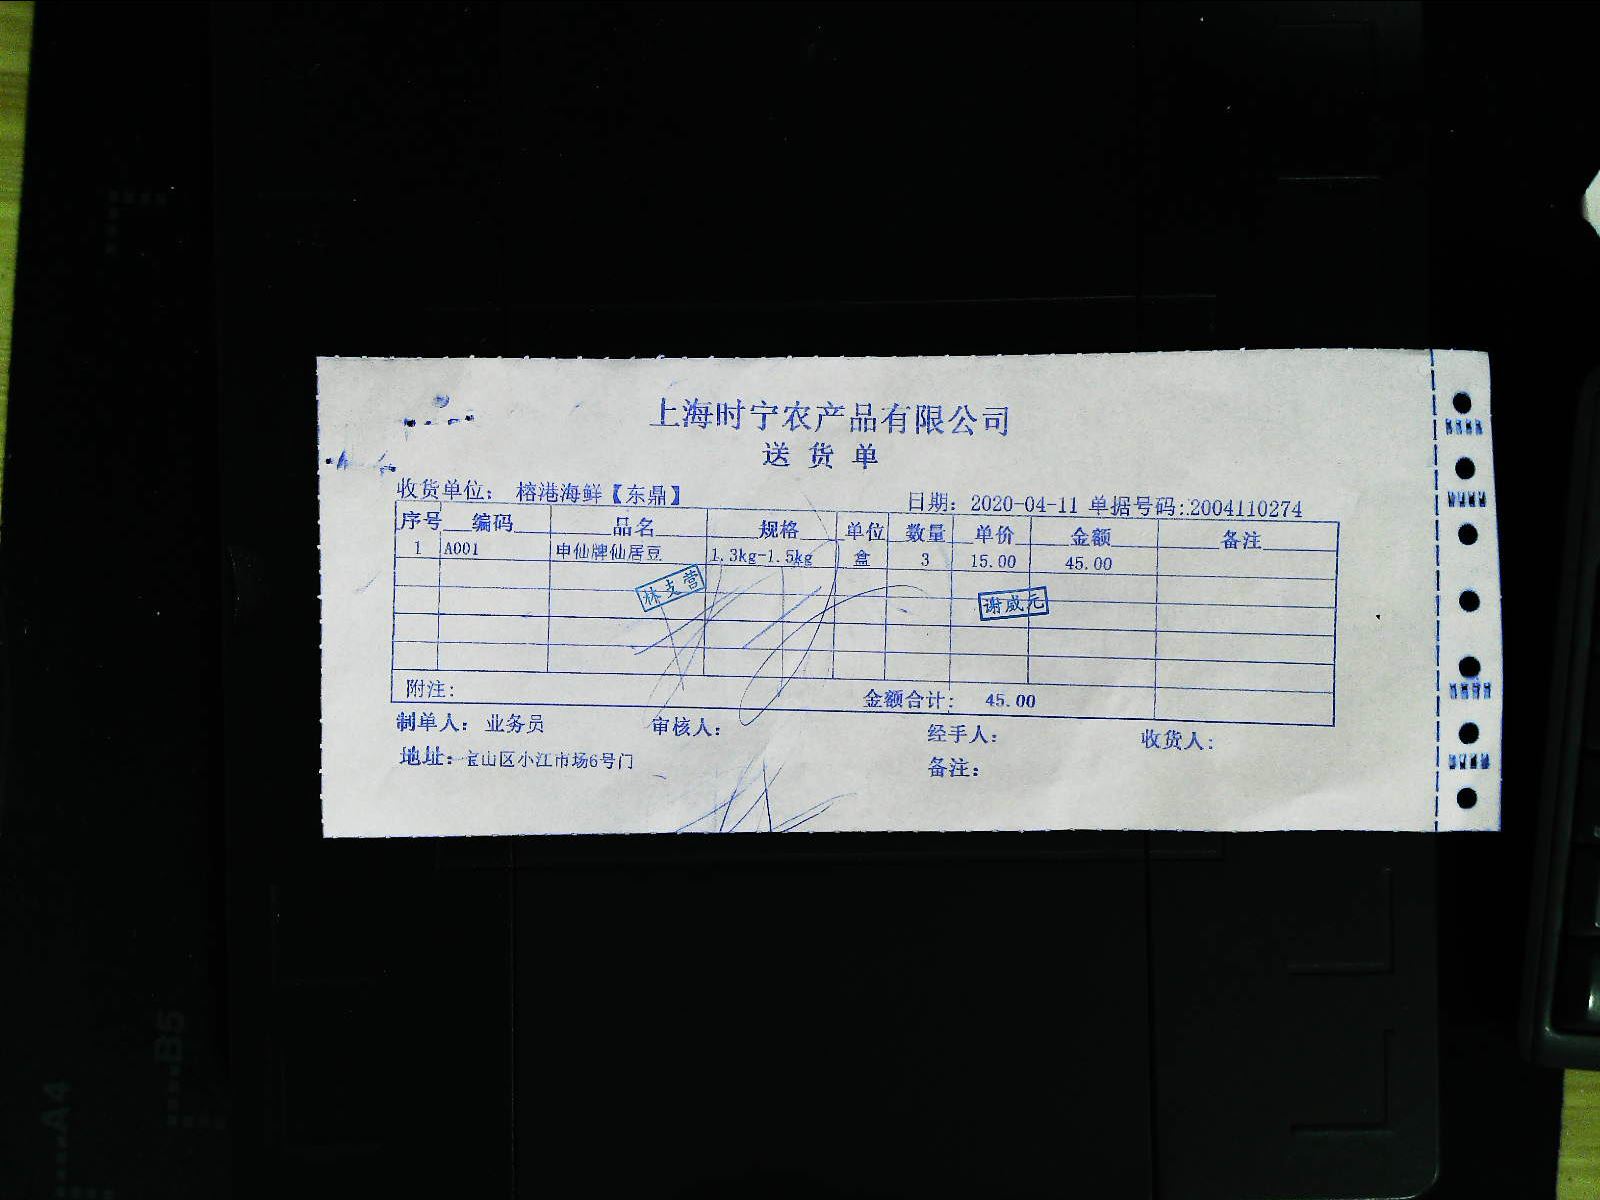 上海时宁农产品有限公司
送货单
收货单位: 榕港海鲜【东鼎】 日期: 2020-04-11 单据号码:2004110274
序号 编码 品名 规格 单位 数量 单价 金额 备注
1 A001 申仙牌仙居豆 1.3kg-1.5kg 盒 3 15.00 45.00
林支营 谢威元
附注: 金额合计: 45.00
制单人: 业务员 审核人: 经手人: 收货人:
地址: 宝山区小江市场6号门 备注:
B5
A4